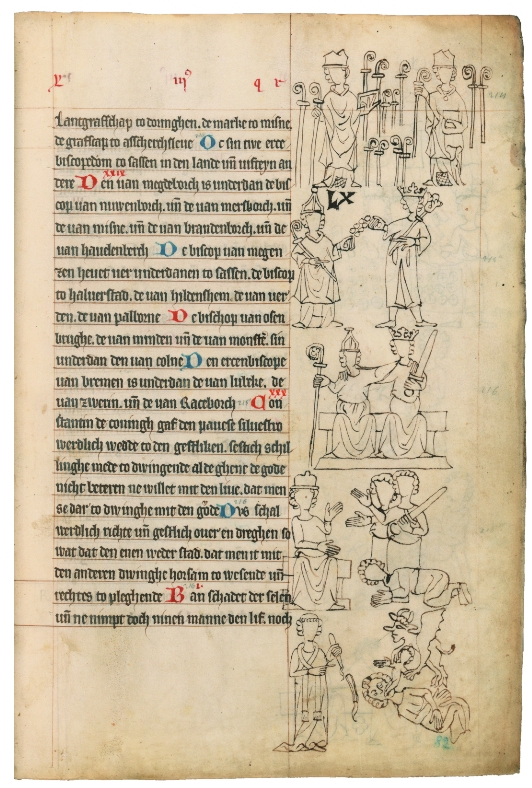 iiiº
Lantgrafschap to doringhen. de marke to misne.
de grafscap to asscherslieue Oc sin twe erce
biscopdom to sassen in den lande vn̄ vifteyn an
dere XXIX Den van megdeborch is underdan de bis
cop van nuwenborch. vn̄ de van mersborch. vn̄
de van misne. vn̄ de van brandenborch. vn̄ de
van hauelenberch De biscop van megen
zen heuet uer underdanen to sassen. de biscop
to haluerstad. de van hyldenshem. de van uer
den. de van palborne De bischop van osen
brughe. de van minden vn̄ de van monst͛. sin
underdan den van colne Den ercenbiscope
van bremen is underdan de van lubeke. de
van zwerin. vn̄ de van Raceborch XXX Con
stantin de coningh gaf den pauese siluestro
werdlich wedde to den gestliken. sestich schil
linghe mede to dwingende al de ghent de gode
nicht beteren ne willet mit den liue. dat men
se dar to dwinghe mit den gode Dus schal
werdlich richte vn̄ gestlich ouer en dreghen so
wat dat den enen weder stad. dat men it mit
den anderen dwinghe horsam to wesende vn̄
rechtes to pleghende Ban schadet der selen
vn̄ ne nimpt doch ninen manne den lif. noch
LX
82